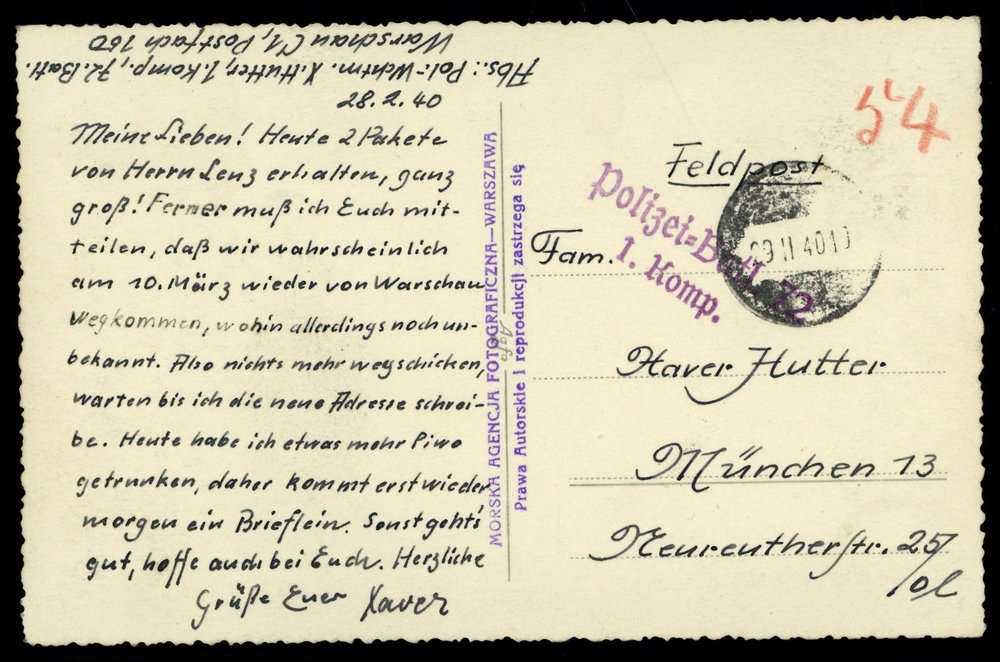 Abs.: Pol.-Wchtm. X. Hutter, 1. Komp., 72. Batl.
Warschau C1, Postfach 160
28.2.40
Meine Lieben! Heute 2 Pakete
von Herrn Lenz erhalten, ganz
groß! Ferner muß ich Euch mit-
teilen, daß wir wahrscheinlich
am 10. März wieder von Warschau
wegkommen, wohin allerdings noch un-
bekannt. Also nichts mehr wegschicken,
warten bis ich die neue Adresse schrei-
be. Heute habe ich etwas mehr Piwo
getrunken, daher kommt erst wieder
morgen ein Brieflein. Sonst geht's
gut, hoffe auch bei Euch. Herzliche
Grüße Euer Xaver
MORSKA AGENCJA FOTOGRAFICZNA—WARSZAWA
Prawa Autorskie i reprodukcji zastrzega się
Agfa
54
Feldpost
Polizei=Batl. 72
1. Komp.
Fam.
Xaver Hutter
München 13
Neureutherstr. 25/